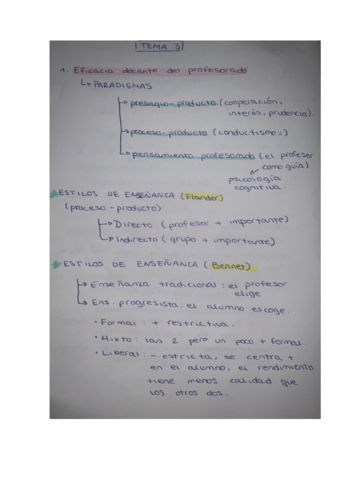 TEMA 3
1. Eficacia docente del profesorado
↳ PARADIGMAS
→ presagio-producto (cooperación,
interés, prudencia).
→ proceso-producto (conductismo)
→ pensamiento profesorado (el profesor
como guía)
psicología
cognitiva.
ESTILOS DE ENSEÑANZA (Flander)
(proceso-producto)
→ Directo (profesor + importante)
→ Indirecto (grupo + importante)
ESTILOS DE ENSEÑANZA (Bennet)
→ Enseñanza tradicional: el profesor
elige
→ Ens. progresista: el alumno escoge.
• Formal: + restrictiva.
• Mixto: las 2 pero un poco + formal
• Liberal: - estricta, se centra +
en el alumno, el rendimiento
tiene menos calidad que
los otros dos.